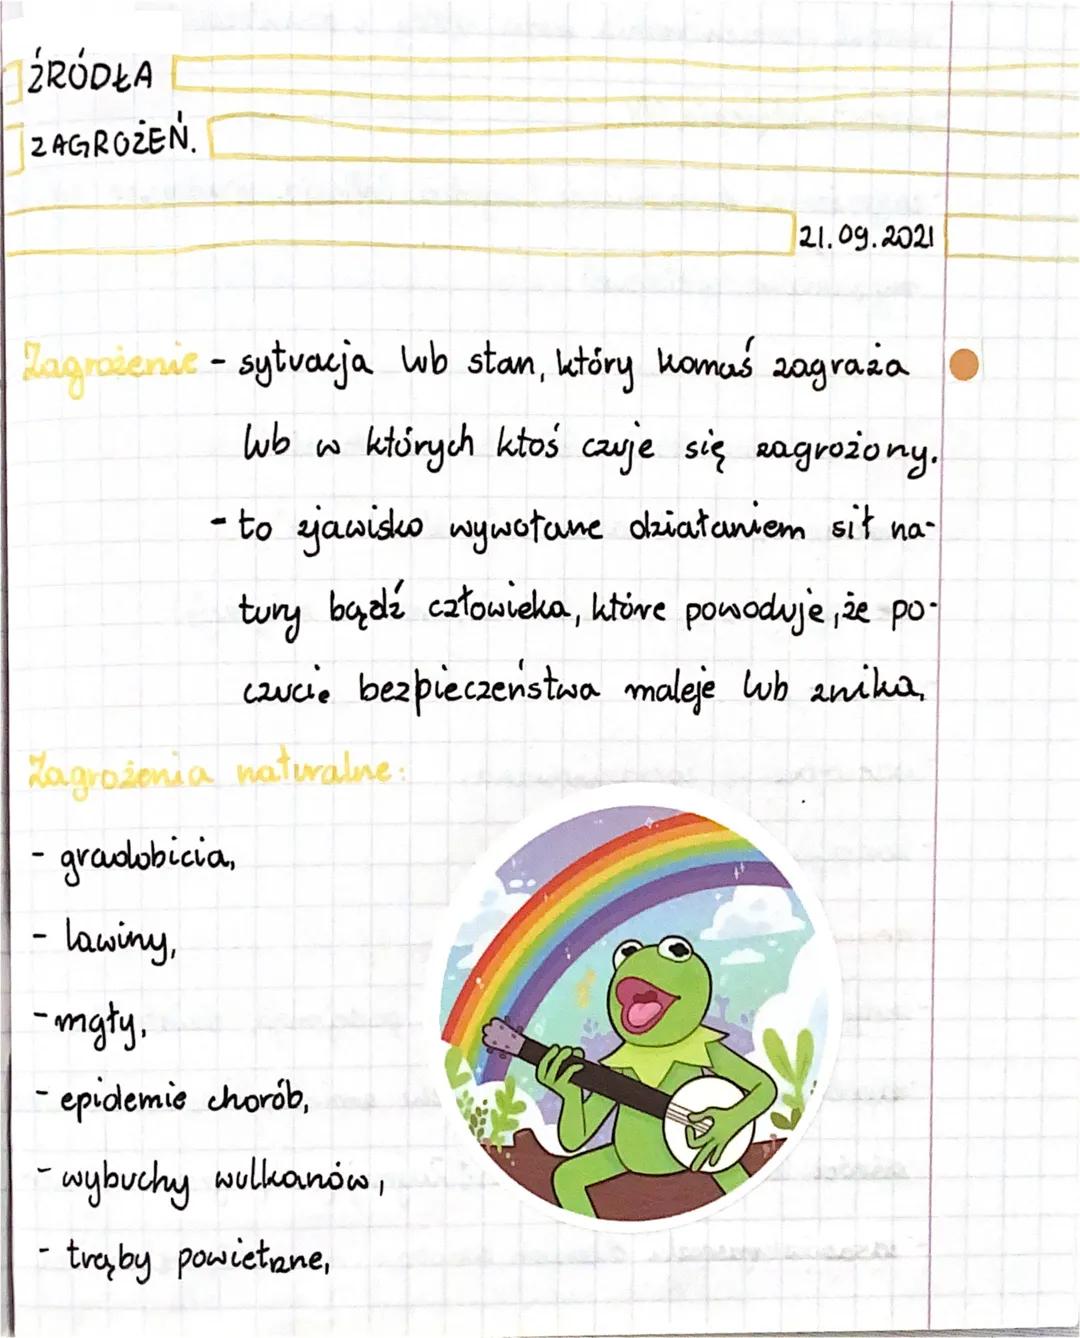 ŹRÓDŁA
ZAGROŻEŃ.
21.09.2021
Zagrożenie - sytuacja lub stan, który komuś zagraża
lub w których ktoś czuje się zagrożony.
- to zjawisko wywołane działaniem sił na-
tury bądź człowieka, które powoduje, że po-
czucie bezpieczeństwa maleje lub znika.
Zagrożenia naturalne:
- gradobicia,
- lawiny,
- mgły,
- epidemie chorób,
- wybuchy wulkanów,
- trąby powietrzne,